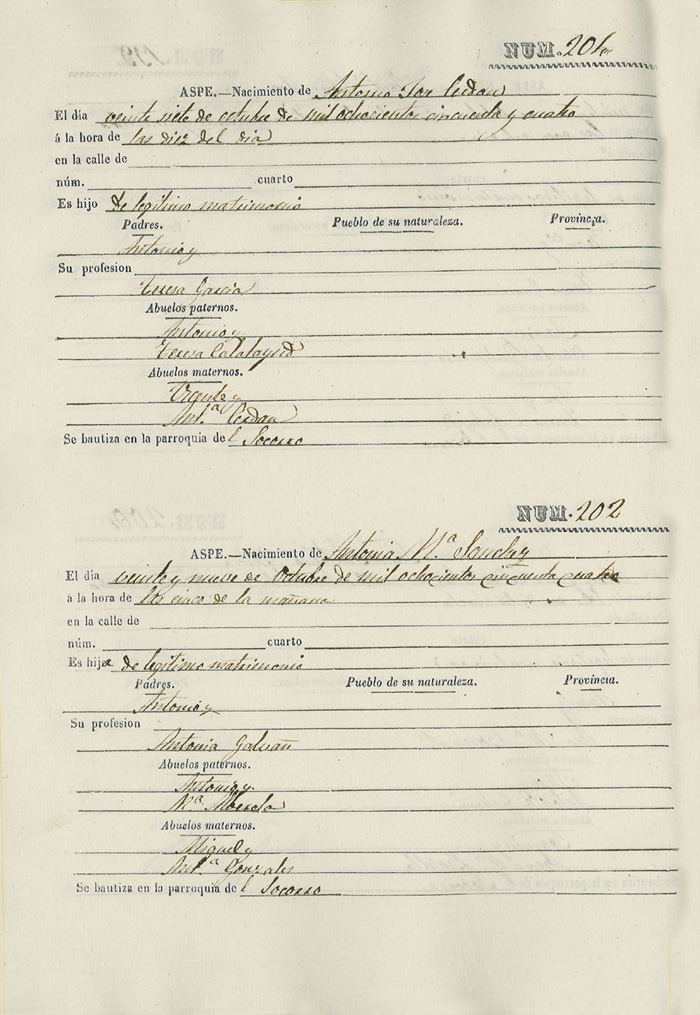 NUM. 201
ASPE.—Nacimiento de Antonio Cerdan
El dia veinte siete de octubre de mil ochocientos cincuenta y cuatro
á la hora de las diez del dia
en la calle de
núm. cuarto
Es hijo de legitimo matrimonio
Padres. Pueblo de su naturaleza. Provincia.
Antonio y
Su profesion
Teresa Garcia
Abuelos paternos.
Antonio y
Teresa Calatayud
Abuelos maternos.
Vicente y
Ant.ª Cerdan
Se bautiza en la parroquia del Socorro
NUM. 202
ASPE.—Nacimiento de Antonia M.ª Sanchez
El dia veinte y nueve de Octubre de mil ochocientos cincuenta cuatro
á la hora de las cinco de la mañana
en la calle de
núm. cuarto
Es hija de legitimo matrimonio
Padres. Pueblo de su naturaleza. Provincia.
Antonio y
Su profesion
Antonia Galvañ
Abuelos paternos.
Antonio y
M.ª
Abuelos maternos.
Miguel y
Ant.ª Gonzales
Se bautiza en la parroquia del Socorro